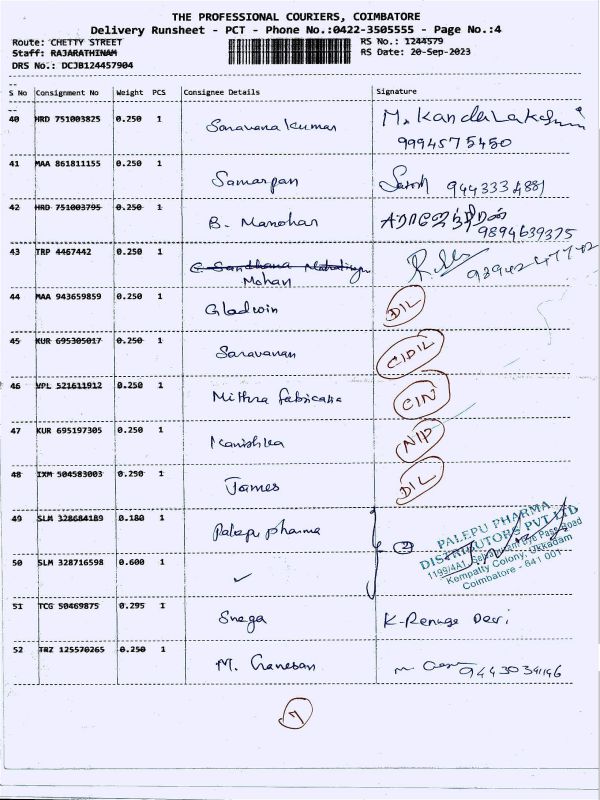 THE PROFESSIONAL COURIERS, COIMBATORE
Delivery Runsheet - PCT - Phone No.:0422-3505555 - Page No.:4
Route: CHETTY STREET RS No.: 1244579
Staff: RAJARATHINAM RS Date: 20-Sep-2023
DRS No.: DCJB124457904
S No Consignment No Weight PCS Consignee Details Signature
40 HRD 751003825 0.250 1 Saravana kumar M. Kandalakshmi
9994575450
41 MAA 861811155 0.250 1 Samarpan 9443334881
42 HRD 751003795 0.250 1 B. Manohar
9894639375
43 TRP 4467442 0.250 1
Mohan
44 MAA 943659859 0.250 1 Gladwin DIL
45 KUR 695305017 0.250 1 Saravanan CIDIL
46 VPL 521611912 0.250 1 Mithra fabricana CIN
47 KUR 695197305 0.250 1 Kanishka NIP
48 IXM 504583003 0.250 1 James DIL
49 SLM 328684189 0.180 1 Palepu pharma 2
PALEPU PHARMA
DISTRIBUTORS PVT LTD
1199/4A1, Selvapuram Bye Pass Road
Kempatty Colony, Ukkadam
Coimbatore - 641 001
50 SLM 328716598 0.600 1
51 TCG 50469875 0.295 1 Snega K. Renuga Devi
52 TRZ 125570265 0.250 1 M. Ganesan
7